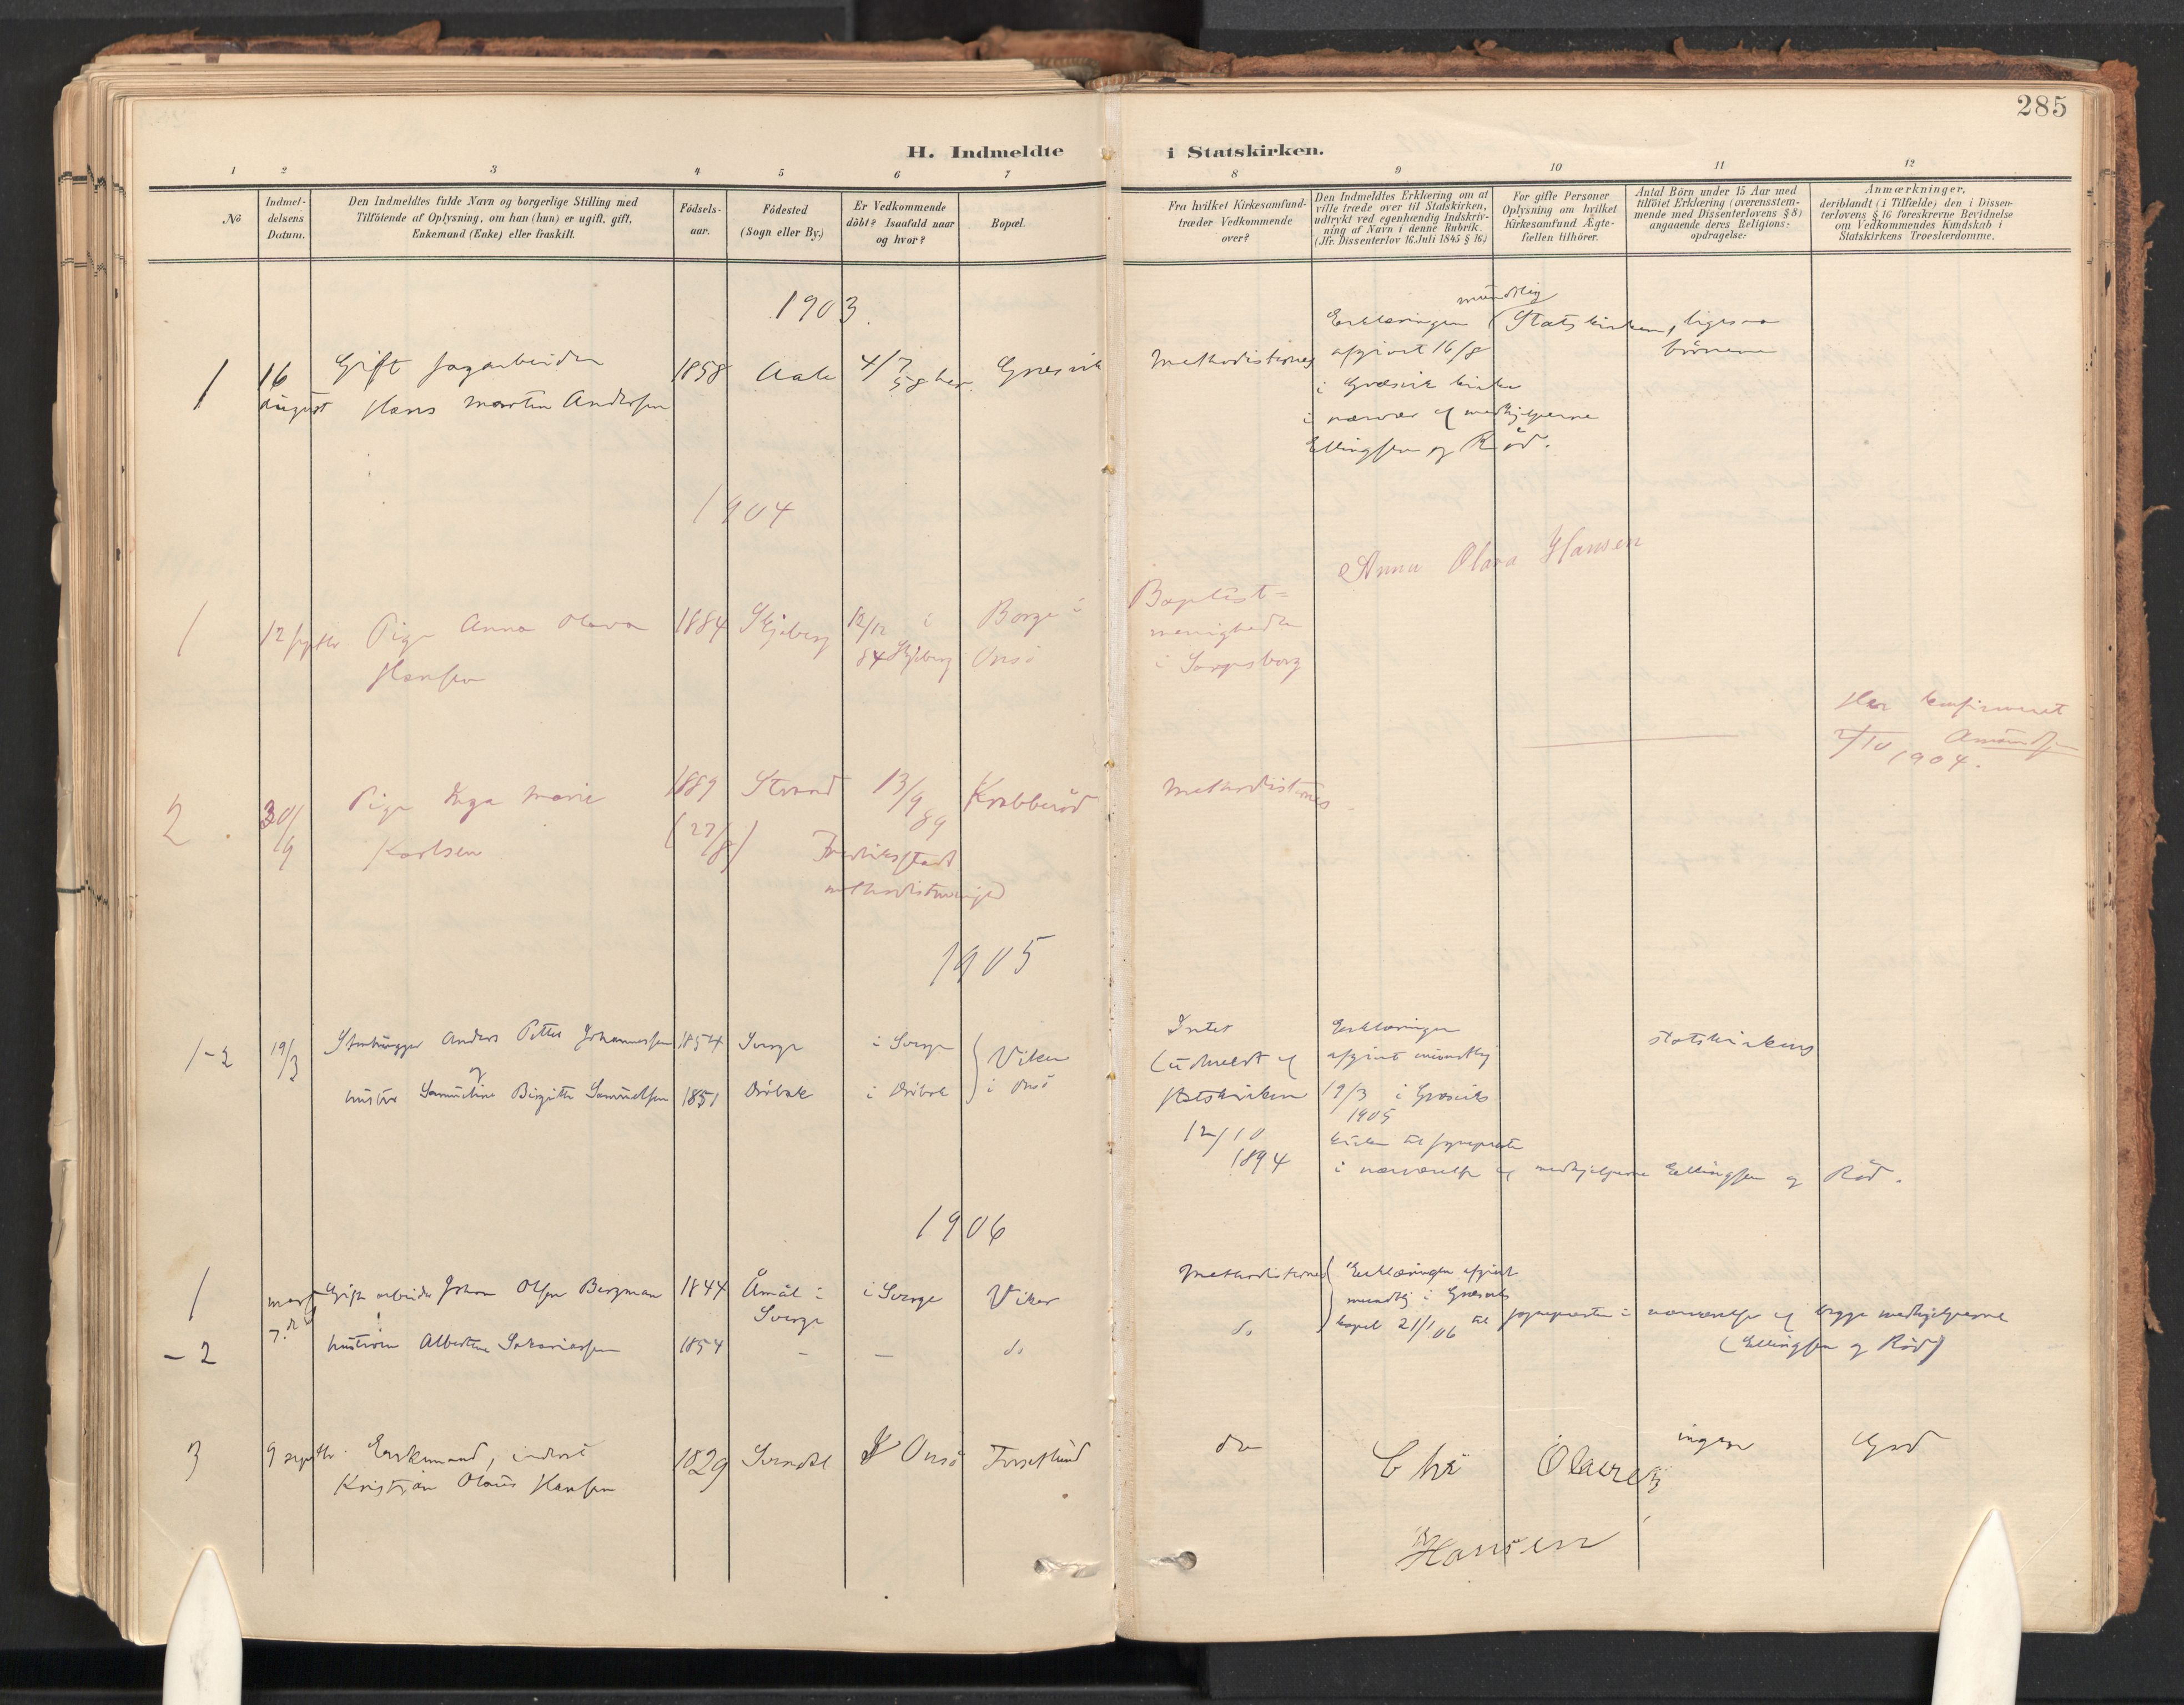 285
H. Indmeldte i Statskirken.
1 2 3 4 5 6 7 8 9 10 11 12
No
Indmel-
delsens
Datum.
Den Indmeldtes fulde Navn og borgerlige Stilling med
Tilföiende af Oplysning, om han (hun) er ugift, gift,
Enkemand (Enke) eller fraskilt.
Födsels-
aar.
Födested
(Sogn eller By.)
Er Vedkommende
döbt? Isaafald naar
og hvor?
Bopæl.
Fra hvilket Kirkesamfund-
træder Vedkommende
over?
Den Indmeldtes Erklæring om at
ville træde over til Statskirken,
udtrykt ved egenhændig Indskriv-
ning af Navn i denne Rubrik.
(Jfr. Dissenterlov 16. Juli 1845 § 16.)
For gifte Personer
Oplysning om hvilket
Kirkesamfund Ægte-
fællen tilhörer.
Antal Börn under 15 Aar med
tilföiet Erklæring (overensstem-
mende med Dissenterlovens § 8)
angaaende deres Religions-
opdragelse.
Anmærkninger,
deriblandt (i Tilfælde) den i Dissen-
terlovens § 16 foreskrevne Bevidnelse
om Vedkommendes Kundskab i
Statskirkens Troeslærdomme.
1903.
1
16
august
Gift
Hans Martin Andersen
1858
4/7
58 her.
Græsvik
Methodisternes
Erklæringen mundtlig
afgivet 16/8
i Græsvik kirke
i nærvær af medhjelperne
Ellingsen og Röd.
Statskirken, ligesaa
börnene
1904
1
12 septbr
Pige Anna Olava
Hansen
1884
Skjeberg
12/12 i
84 Skjeberg
Borge i
Onsö
Baptist-
menigheden
i Sarpsborg
Anna Olava Hansen
2
30/9
Pige Inga Marie
Karlsen
1889
(27/8)
Strand
13/9
89
Fredriksstad
methodistmenighed
Krabberöd
Methodisternes
Her konfirmeret
2/10 1904.
Amundsen
1905
1-2
19/3
Stenhugger Anders Petter Johannessen
og
hustru Samueline Birgitte Samuelsen
1854
1851
Sverge
Dröbak
i Sverge
i Dröbak
Viker
i Onsö
Intet
(udmeldt af
statskirken
12/10
1894
Erklæringen
afgivet mundtlig
19/3 i Græsviks
1905
kirke til sognepresten
i nærværelse af medhjelperne Ellingsen og Röd.
statskirkens
1906
1
Gift arbeider Johan Olsen Bergman
1844
Åmål i
Sverge
i Sverge
Viker
Methodisternes
Erklæringen afgivet
mundtlig i Græsvik
kapel 21/1 06 til sognepresten i nærværelse af begge medhjelperne
(Ellingsen og Röd)
- 2
hustruen Albertine Sakariassen
1854
-
-
do
do
3
9 septbr
Enkemand,
Kristian Olaus Hansen
1829
Onsö
do
Chr Olaus
Hansen
ingen
God